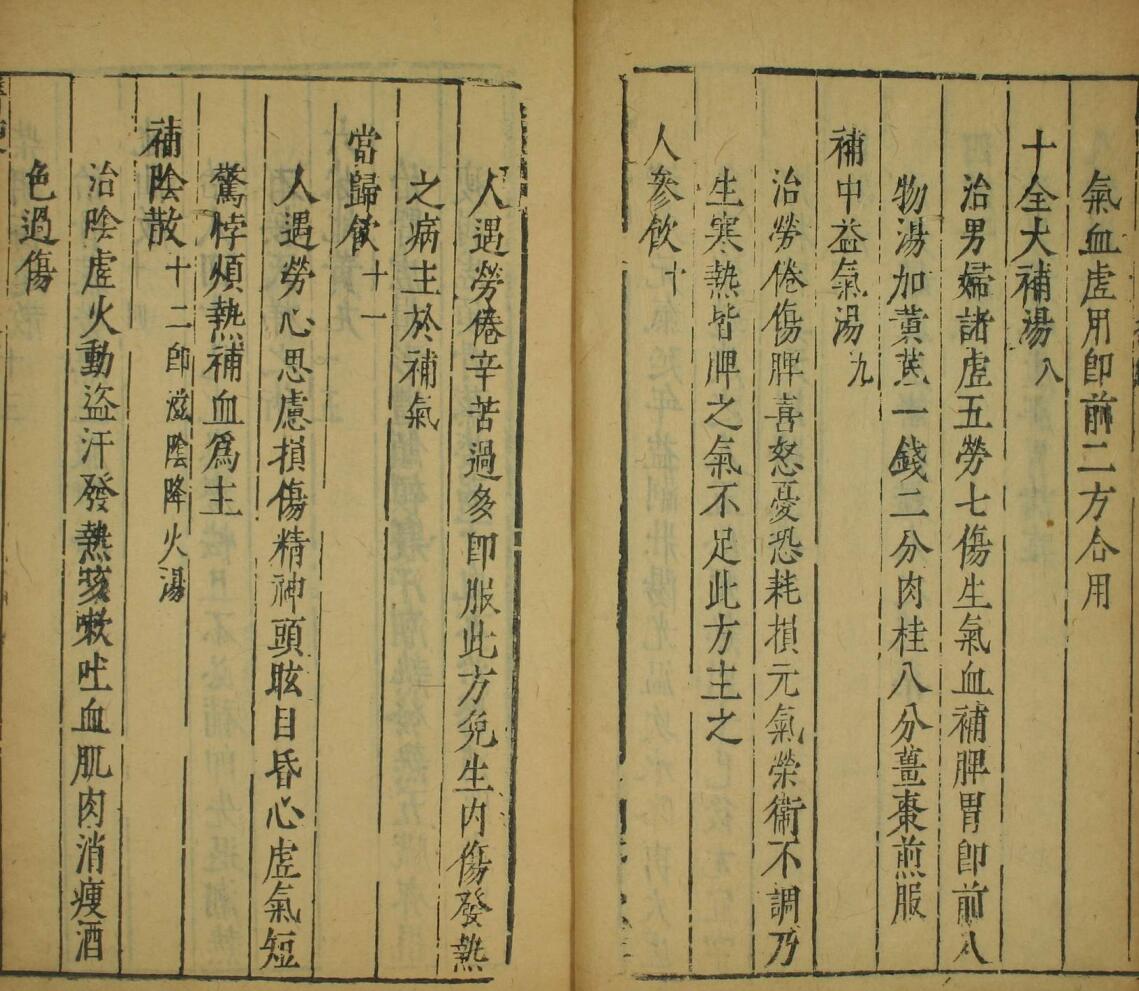 氣血虛用卽前二方合用
十全大補湯八
治男婦諸虛五勞七傷生氣血補脾胃卽前八
物湯加黃芪一錢二分肉桂八分薑棗煎服
補中益氣湯九
治勞倦傷脾喜怒憂恐耗損元氣榮衛不調乃
生寒熱皆脾之氣不足此方主之
人參飮十
人遇勞倦辛苦過多卽服此方免生內傷發熱
之病主於補氣
當歸飮十一
人遇勞心思慮損傷精神頭眩目昏心虛氣短
驚悸煩熱補血爲主
補陰散十二卽滋陰降火湯
治陰虛火動盜汗發熱咳嗽吐血肌肉消瘦酒
色過傷